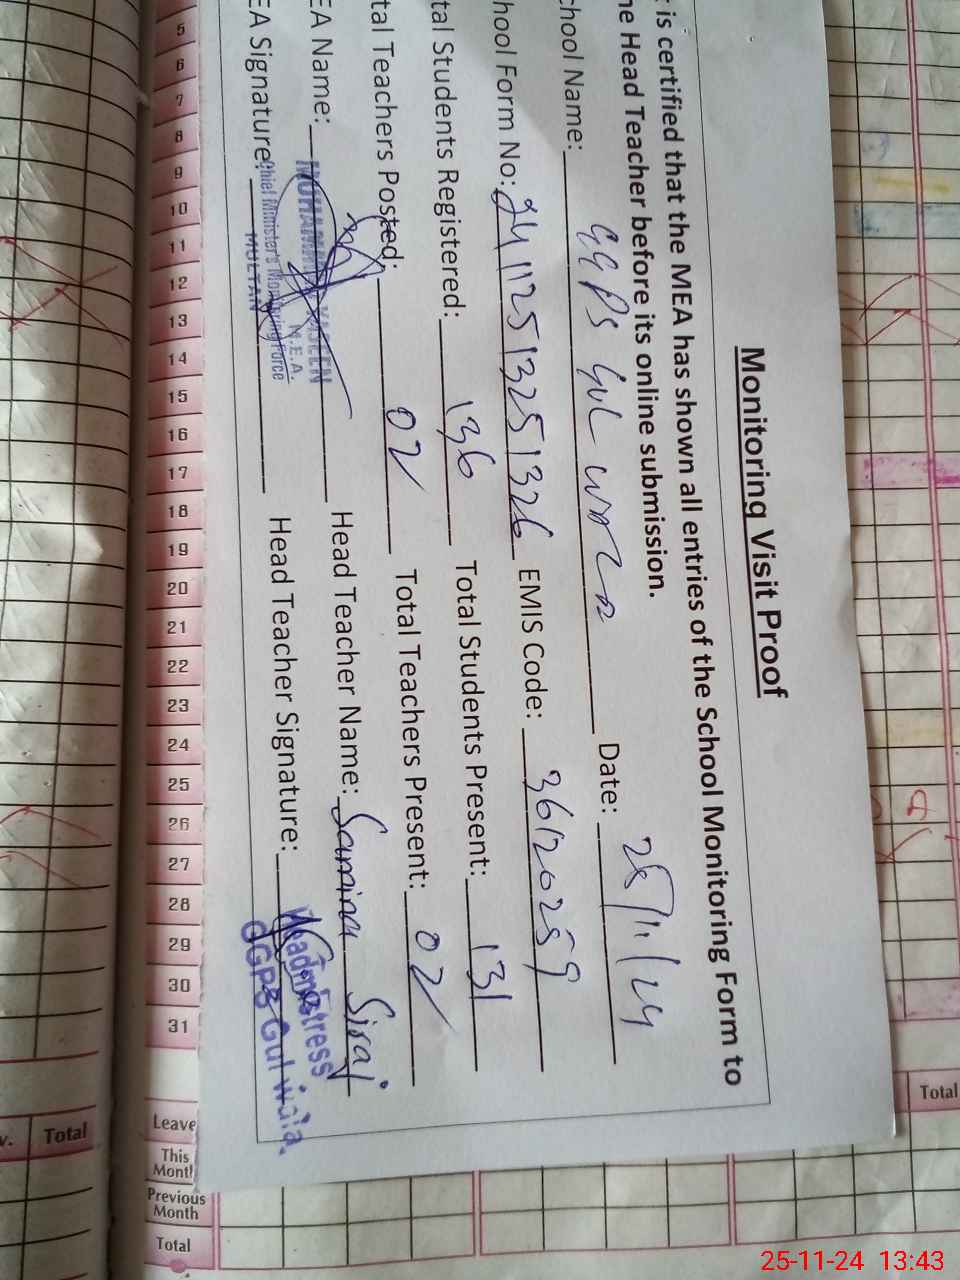 Monitoring Visit Proof
is certified that the MEA has shown all entries of the School Monitoring Form to
he Head Teacher before its online submission.
chool Name: GGPS Gul wala Date: 25/11/24
hool Form No: 24112513251326 EMIS Code: 36120259
tal Students Registered: 136 Total Students Present: 131
tal Teachers Posted: 02 Total Teachers Present: 02
EA Name: MUHAMMAD YASEEN Head Teacher Name: Samina Siraj
M.E.A.
EA Signature: Chief Minister's Monitoring Force Head Teacher Signature: Headmistress
MULTAN
GGPS Gul wala.
5
6
7
8
9
10
11
12
13
14
15
16
17
18
19
20
21
22
23
24
25
26
27
28
29
30
31
Leave
This Month
Previous Month
Total
v. Total
Total
25-11-24 13:43